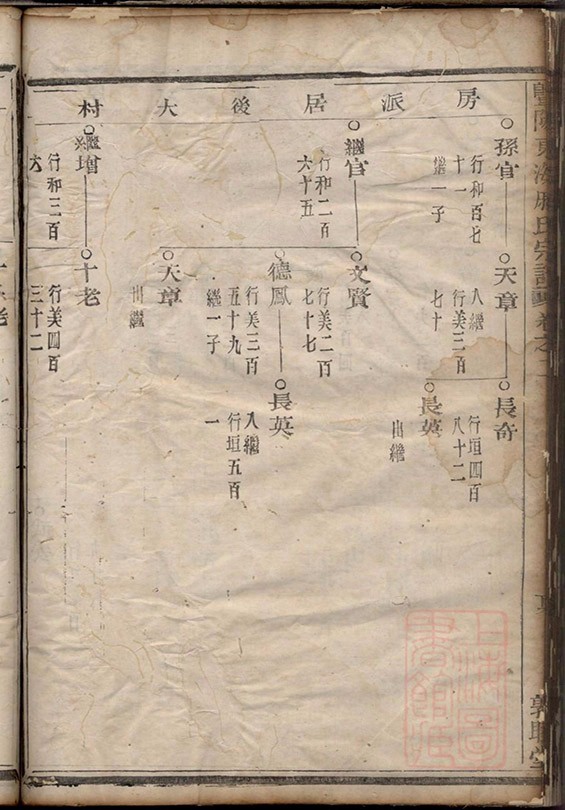 房派居後大村
孫官
行和百七
十一
繼一子
天章
入繼
行美三百
七十
長奇
行垣四百
八十二
長英
出繼
繼官
行和二百
六十五
文賢
行美二百
七十七
德鳳
行美三百
五十九
繼一子
長英
入繼
行垣五百
一
天章
出繼
繼增
行和三百
六
十老
行美四百
三十二
上海圖書館藏